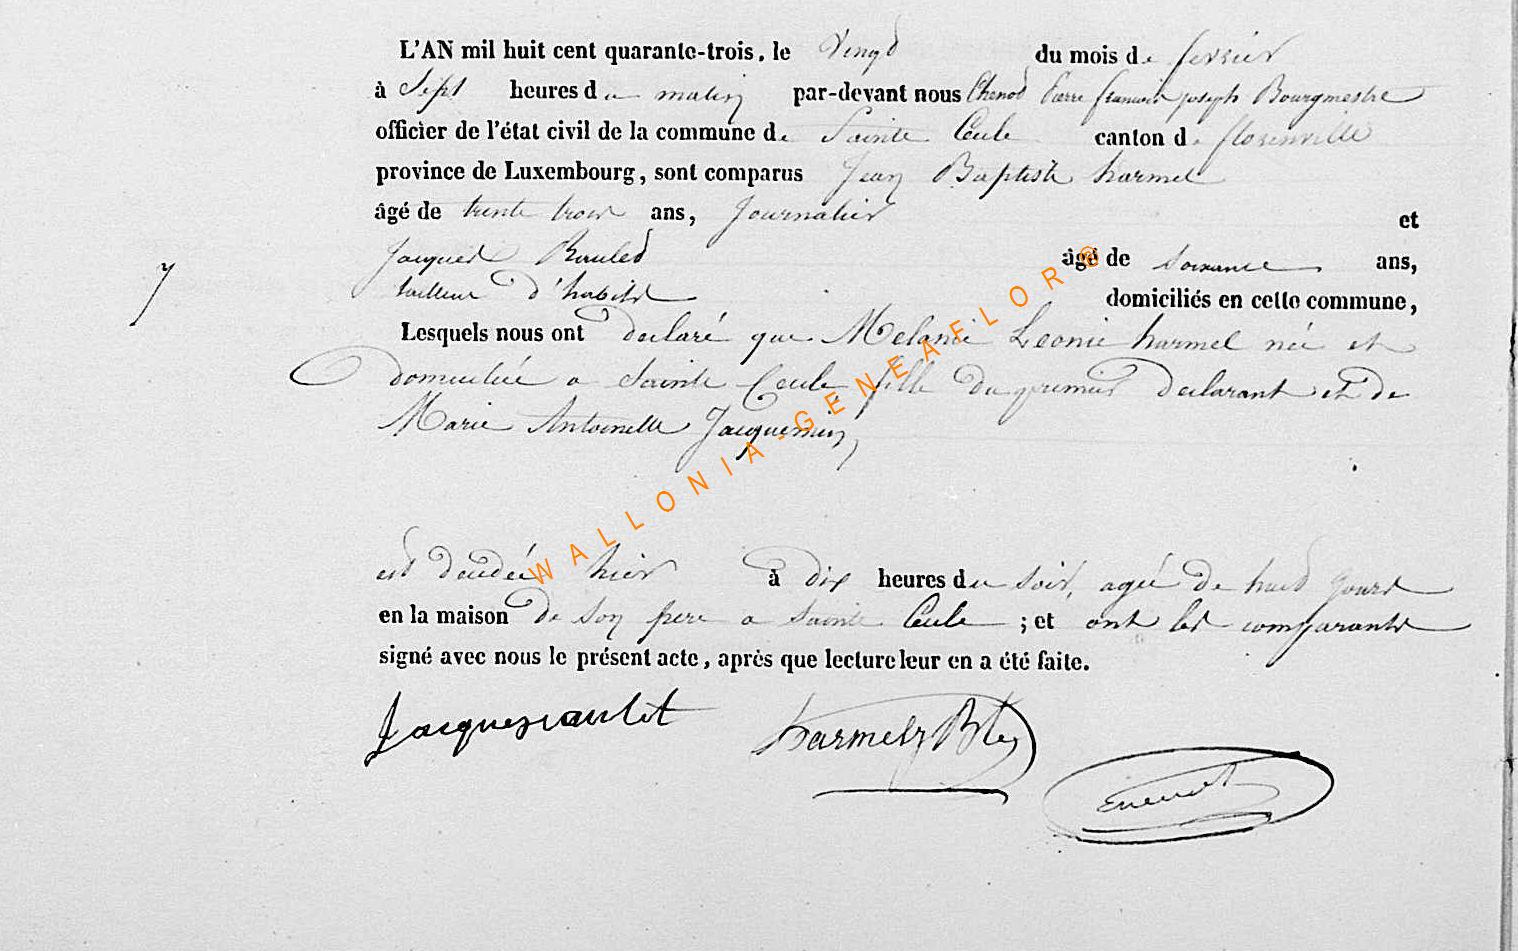 L'AN mil huit cent quarante-trois, le Vingt du mois de fevrier
à Sept heures du matin par-devant nous Pierre francois joseph Bourgmestre
officier de l'état civil de la commune de Sainte Cecile canton de florenville
province de Luxembourg, sont comparus Jean Baptiste harmel
âgé de trente trois ans, Journalier et
Jacques Raulet âgé de soixante ans,
tailleur d'habits domiciliés en cette commune,
7
Lesquels nous ont declaré que Melanie Leonie harmel née et
domiciliée a Sainte Cecile fille du premier declarant et de
Marie Antoinette Jacquemin,
est decedée hier à dix heures du soir, agée de huit jours
en la maison de son pere a Sainte Cecile ; et ont les comparants
signé avec nous le présent acte, après que lecture leur en a été faite.
Jacques raulet harmel j Bte
WALLONIA-GENEAFLOR®